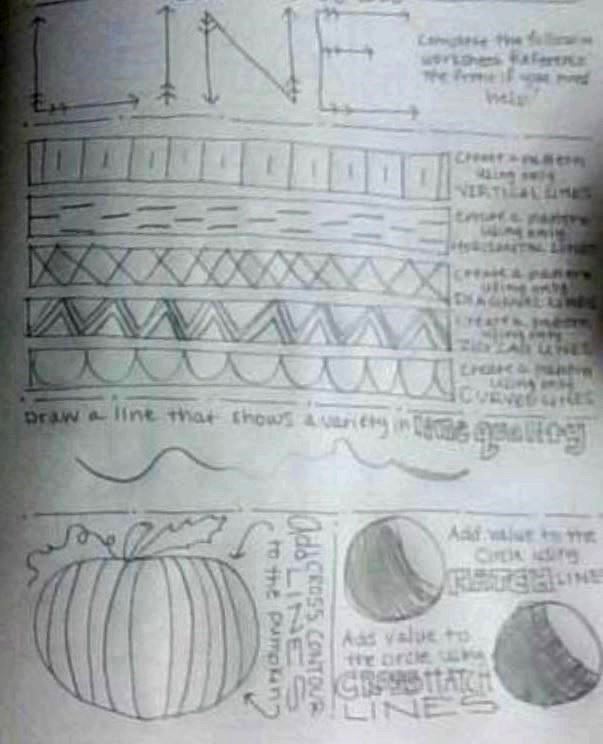 LINE
Complete the following
worksheet. Reference
the front if you need
help!
Create a pattern
using only
VERTICAL LINES
Create a pattern
using only
HORIZONTAL LINES
Create a pattern
using only
DIAGONAL LINES
Create a pattern
using only
ZIG ZAG LINES
Create a pattern
using only
CURVED LINES
Draw a line that shows a variety in line quality
add CROSS CONTOUR
LINES
to the pumpkin
Add value to the
circle using
HATCH LINES
Add value to
the circle using
CROSSHATCH
LINES